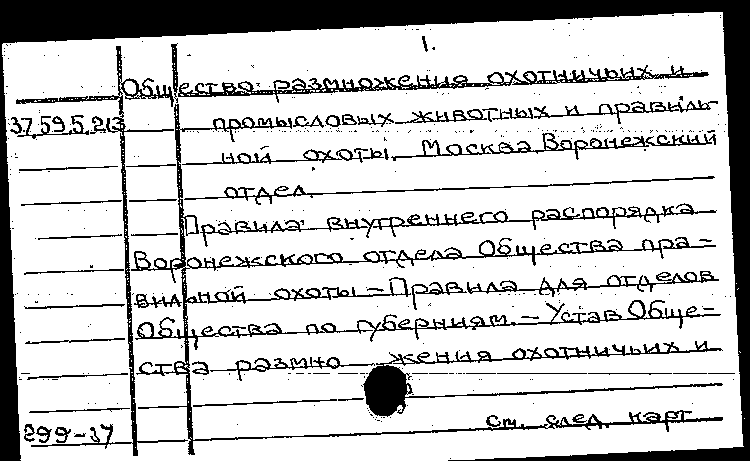 1.
Общество размножения охотничьих и
37.59.5.213 промысловых животных и правиль
ной охоты. Москва. Воронежский
отдел.
Правила внутреннего распорядка
Воронежского отдела Общества пра=
вильной охоты = Правила для отделов
Общества по губерниям. - Устав Обще=
ства размно жения охотничьих и
299-37 см. след. карт